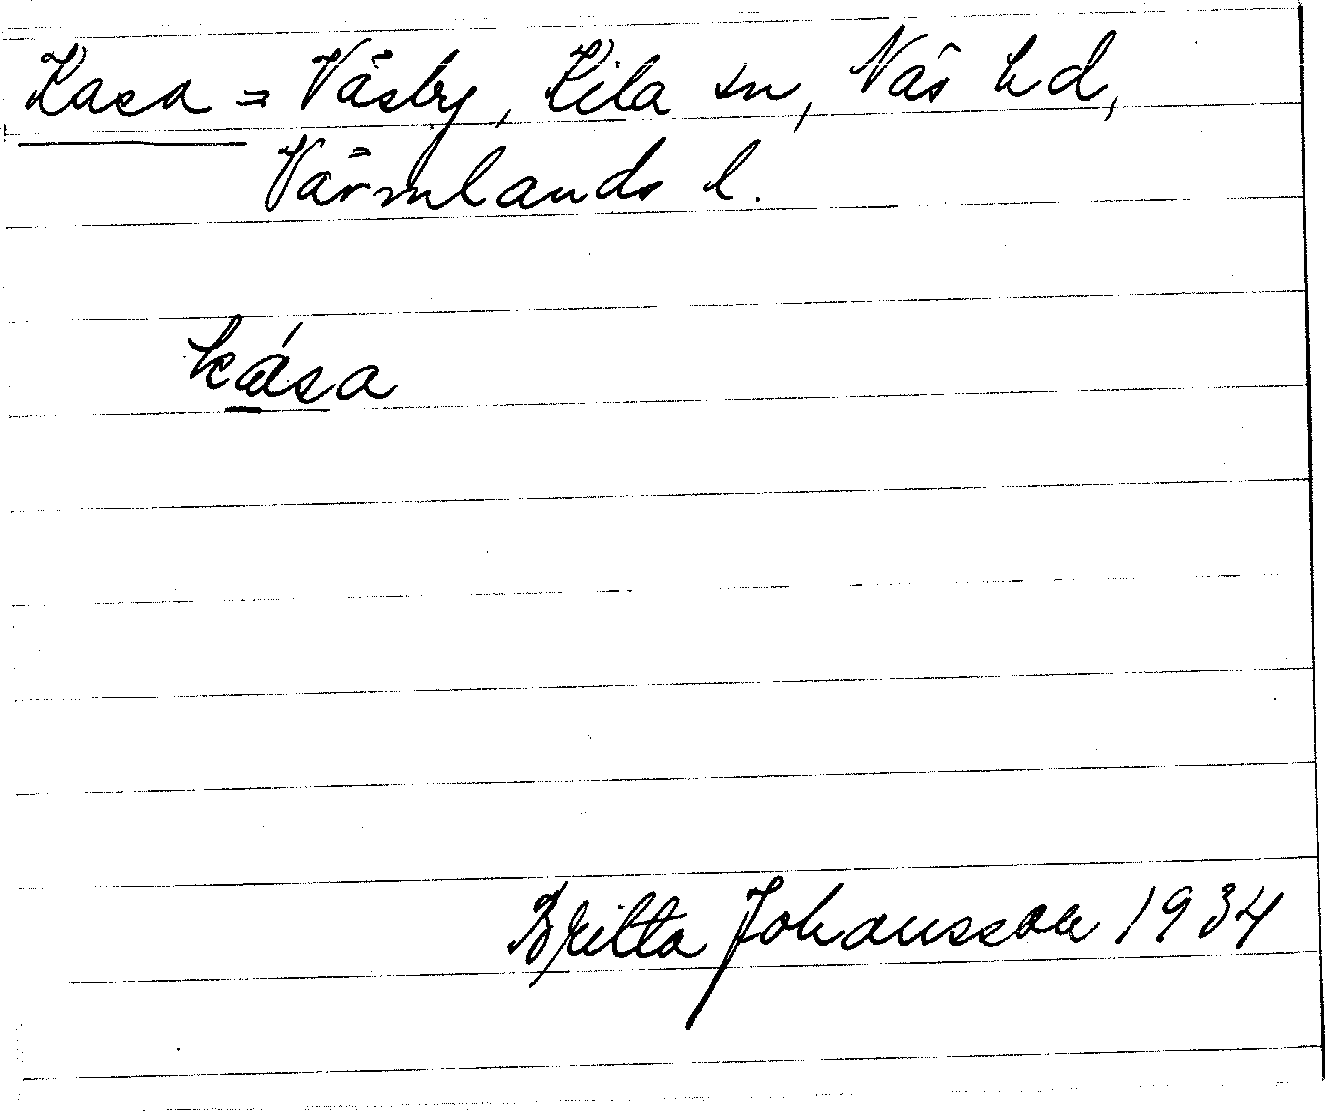 Kasa = Väsby, Kila sn, Näs hd,
Värmlands l.
kása
Britta Johansson 1934